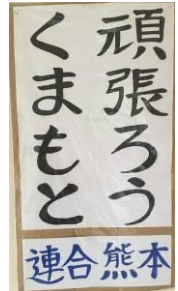 頑張ろう
くまもと
連合熊本